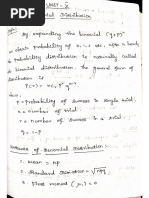 UNIT-II
Binomial Distribution
By expanding the binomial (q+p)ⁿ
we obtain probability of 0, 1,
probability distribution is naturally called
binomial distribution. the general form of
distribution is
P(r) = nCr pʳ qⁿ⁻ʳ
p = Probability of success in single trial.
n = number of trial.
r = number of success in n trial.
q = 1 - p
of Binomial Distribution
1. Mean = np
2. Standard Deviation = √npq
3. First moment (μ₁) = 0